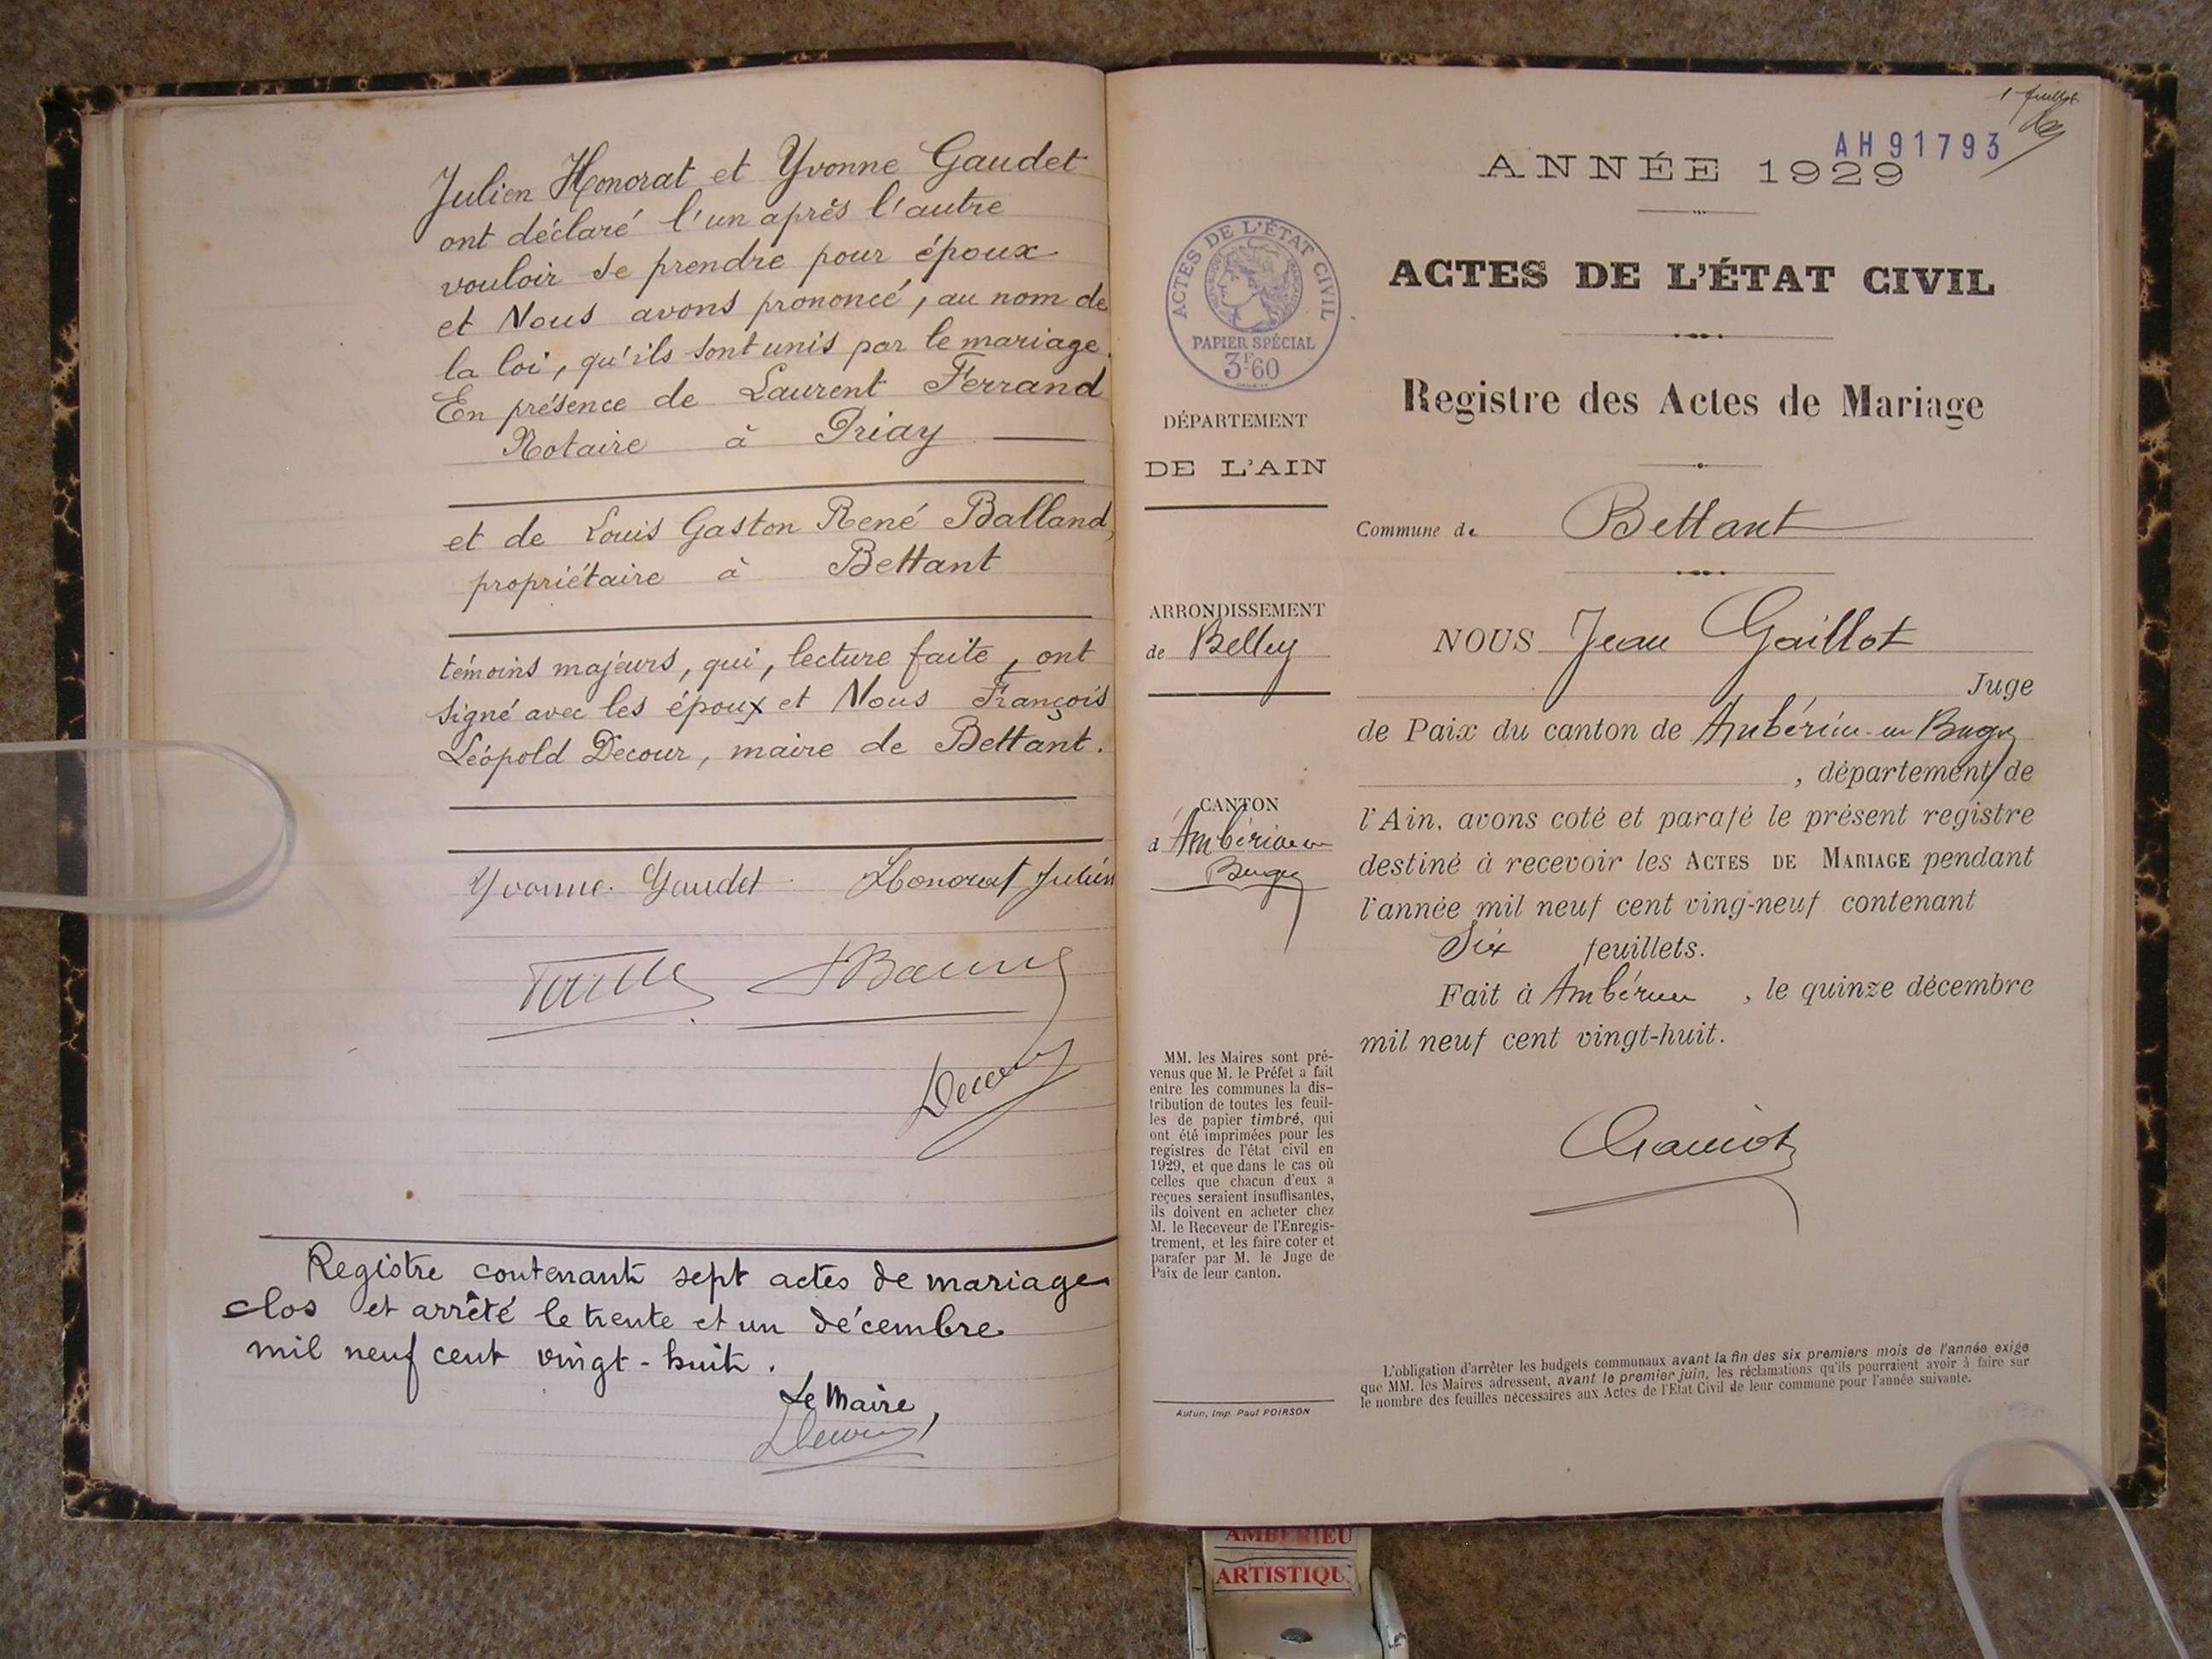 Julien Honorat et Yvonne Gaudet
ont déclaré l'un après l'autre
vouloir se prendre pour époux
et Nous avons prononcé, au nom de
la loi, qu'ils sont unis par le mariage.
En présence de Laurent Ferrand
Notaire à Priay
et de Louis Gaston René Balland,
propriétaire à Bettant
témoins majeurs, qui, lecture faite, ont
signé avec les époux et Nous François
Léopold Decour, maire de Bettant.
Yvonne Gaudet Honorat Julien
Decour
Registre contenant sept actes de mariage
clos et arrêté le trente et un décembre
mil neuf cent vingt-huit.
Le Maire,
Decour
1 feuillet
AH 91793
ANNÉE 1929
ACTES DE L'ÉTAT CIVIL
PAPIER SPÉCIAL
3F60
ACTES DE L'ÉTAT CIVIL
Registre des Actes de Mariage
DÉPARTEMENT
DE L'AIN
Commune de Bettant
ARRONDISSEMENT
de Belley
NOUS Jean Gaillot
Juge
de Paix du canton de Ambérieu-en Bugey
, département de
CANTON
d'Ambérieu en
Bugey
l'Ain, avons coté et parafé le présent registre
destiné à recevoir les ACTES DE MARIAGE pendant
l'année mil neuf cent ving-neuf contenant
Six feuillets.
Fait à Ambérieu, le quinze décembre
mil neuf cent vingt-huit.
MM. les Maires sont pré-
venus que M. le Préfet a fait
entre les communes la dis-
tribution de toutes les feuil-
les de papier timbré, qui
ont été imprimées pour les
registres de l'état civil en
1929, et que dans le cas où
celles que chacun d'eux a
reçues seraient insuffisantes,
ils doivent en acheter chez
M. le Receveur de l'Enregis-
trement, et les faire coter et
parafer par M. le Juge de
Paix de leur canton.
Autun, Imp. Paul POIRSON
L'obligation d'arrêter les budgets communaux avant la fin des six premiers mois de l'année exige
que MM. les Maires adressent, avant le premier juin, les réclamations qu'ils pourraient avoir à faire sur
le nombre des feuilles nécessaires aux Actes de l'Etat Civil de leur commune pour l'année suivante.
AMBERIEU
ARTISTIQU